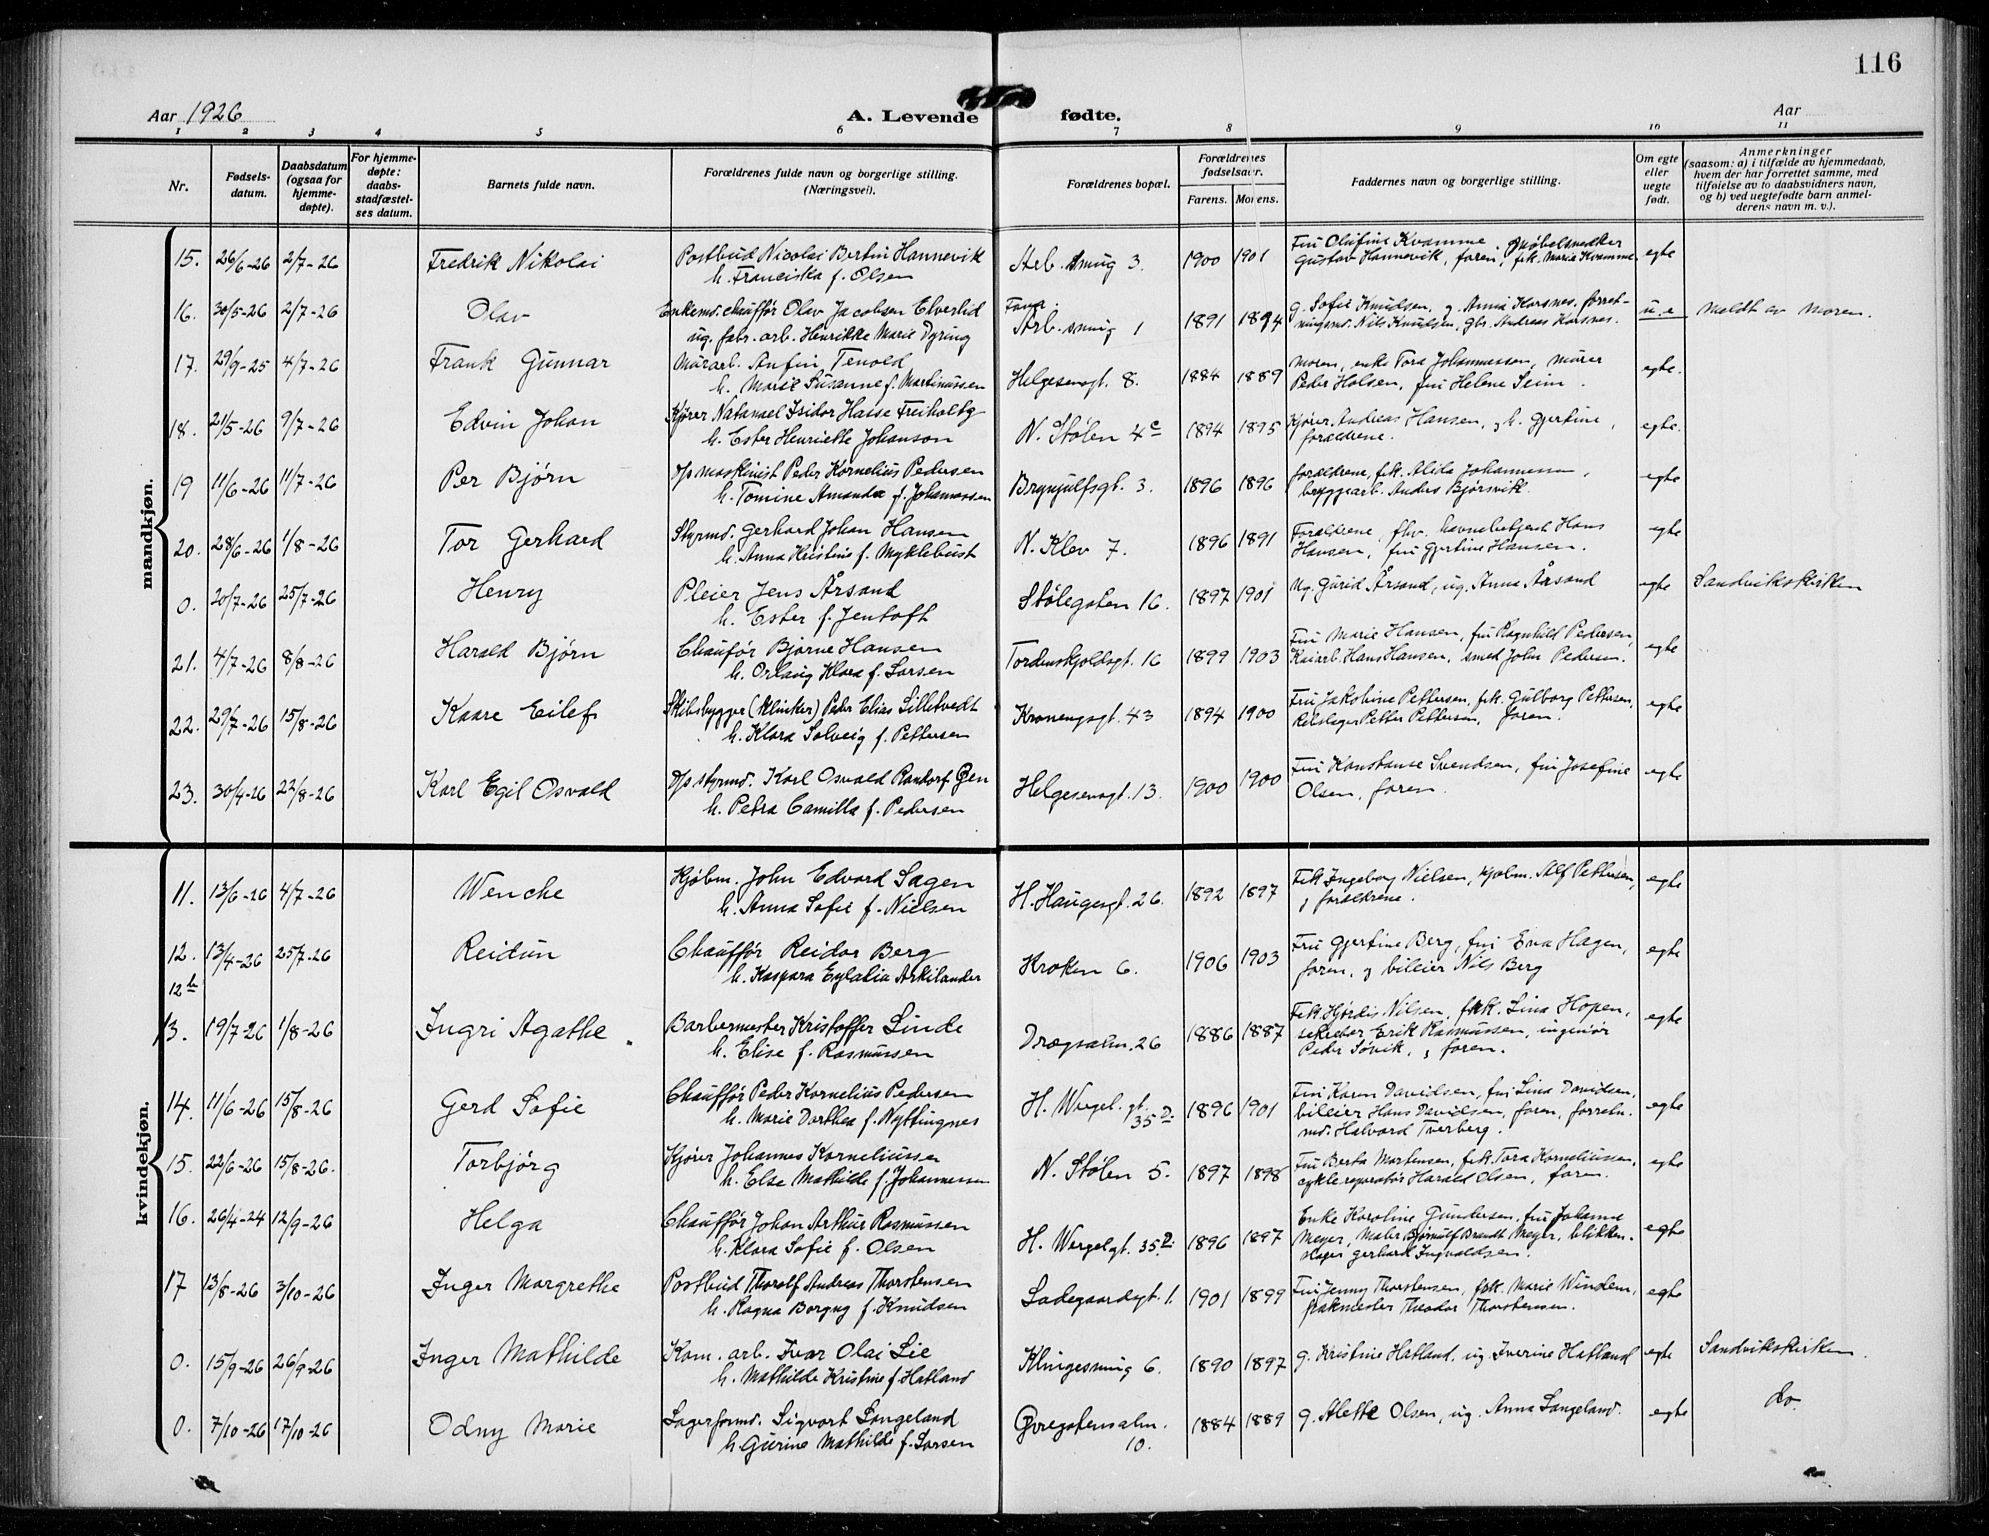 116
Aar 1926 A. Levende fødte. Aar
1 2 3 4 5 6 7 8 9 10 11
Nr. Fødsels-datum. Daabsdatum (ogsaa for hjemme-døpte). For hjemme-døpte: daabs-stadfæstel-ses datum. Barnets fulde navn. Forældrenes fulde navn og borgerlige stilling. (Næringsvei). Forældrenes bopæl. Forældrenes fødselsaar. Farens. Morens. Faddernes navn og borgerlige stilling. Om egte eller uegte født. Anmerkninger (saasom: a) i tilfælde av hjemmedaab, hvem der har forrettet samme, med tilføielse av to daabsvidners navn, og b) ved uegtefødte barn anmel-derens navn m. v.).
mandkjøn.
15. 26/6-26 2/7-26 Fredrik Nikolai Postbud Nicolai Bertin Hannevik Arb. smug 3. 1900 1901 Fru Olufine Kvamme, Møbelsnedker egte
h. Franciska f. Olsen Gustav Hannevik, faren, frk. Marie Kvamme
16. 30/5-26 2/7-26 Olav Enkemd. chauffør Olav Jacobsen Elverlid Fana. Arb. smug 1 1891 1894 g. Sofie Knudsen, g. Anna Korsnes, forret- u.e Meldt av moren.
ug. fabr. arb. Henrikke Marie Dyring ningsmd. Nils Knudsen, gbr. Andreas Korsnes.
17. 29/9-25 4/7-26 Frank Gunnar Murarb. Anfin Tenold Helgesensgt. 8. 1884 1889 Moren, enke Tora Johannessen, murer egte.
h. Marie Susanne f. Martinussen Peder Holsen, fru Helene Seim.
18. 21/5-26 9/7-26 Edvin Johan Kjører Natanael Isidor Hasse Freiholtz N. Stølen 4c 1894 1895 Kjører Andreas Hansen, g h. Gjertine, egte.
h. Ester Henriette Johanson forældrene.
19 11/6-26 11/7-26 Per Bjørn D/s maskinist Peder Kornelius Pedersen Brynjulfsgt. 3. 1896 1896 forældrene, frk. Alida Johannessen, egte
h. Tomine Amanda f. Johannessen bryggearb. Anders Bjørsvik.
20. 28/6-26 1/8-26 Tor Gerhard Styrmd. Gerhard Johan Hansen N. Klev 7. 1896 1891 Forældrene, fhv. havnebetjent Hans egte
h. Anna Kristine f. Myklebust Hansen, fru Gjertine Hansen.
0. 20/7-26 25/7-26 Henry Pleier Jens Årsand Stølegaten 16. 1897 1901 Ug. Gurid Årsand, ug. Anna Årsand egte Sandvikskirken
h. Ester f. Jentoft
21. 4/7-26 8/8-26 Harald Bjørn Chauffør Bjarne Hansen Tordenskjoldsgt. 16 1899 1903 Fru Marie Hansen, fru Ragnhild Pedersen, egte
h. Orlaug Klara f. Larsen Kaiarb. Hans Hansen, smed John Pedersen.
22. 29/7-26 15/8-26 Kaare Eilef Skibsbygger (klinker) Peder Elias Silletvedt Kronengsgt. 43 1894 1900 Fru Jakobine Pettersen, frk. Gulborg Pettersen, egte
h. Klara Solveig f. Pettersen Reisleger Petter Pettersen, faren.
23. 30/4-26 22/8-26 Karl Egil Osvald D/s styrmd. Karl Osvald Randorf Øen Helgesensgt. 13. 1900 1900 Fru Konstanse Svendsen, fru Josefine egte
h. Petra Camilla f. Pedersen Olsen, faren.
kvindekjøn.
11. 13/6-26 4/7-26 Wenche Kjøbm. John Edvard Sagen H. Haugesgt. 26. 1892 1897 Frk. Ingeborg Nielsen, kjøbm. Alf Pettersen, egte
h. Anna Sofie f. Nielsen g forældrene.
12. 13/4-26 25/7-26 Reidun Chauffør Reidar Berg Kroken 6. 1906 1903 Fru Gjertine Berg, fru Eva Hagen, egte
12b h. Kaspara Eylalia Arkilander faren, g bileier Nils Berg
13. 19/7-26 1/8-26 Ingri Agathe Barbermester Kristoffer Linde Drægsalm. 26 1886 1887 Frk. Hjørdis Nilsen, frk. Lina Hopen, egte
h. Elise f. Rasmussen sekretær Erik Rasmussen, ingeniør
Peder Søvik, g faren.
14. 11/6-26 15/8-26 Gerd Sofie Chauffør Peder Kornelius Pedersen H. Wergel. gt. 35D. 1896 1901 Fru Karen Davidsen, fru Lina Davidsen, egte
h. Marie Dorthea f. Nyttingnes bileier Hans Davidsen, faren, forretn.
md. Halvard Tverberg.
15. 22/6-26 15/8-26. Torbjørg Kjører Johannes Korneliussen N. Stølen 5. 1897 1898 Fru Berta Mortensen, frk. Tora Korneliussen, egte
h. Else Mathilde f. Johannessen cykle reparatør Harald Olsen, faren.
16. 26/4-24 12/9-26 Helga Chauffør Johan Arthur Rasmussen H. Wergelgt. 35D. 1896 1897 Enke Karoline Gundersen, fru Johanna egte
h. Klara Sofie f. Olsen Meyer, Maler Bjørnulf Brandt Meyer, blikken-
slager Gerhard Ingvaldsen.
17 13/8-26 3/10-26 Inger Margrethe Postbud Thoralf Andreas Thorstensen Ladegaardsgt. 1. 1901 1899 Fru Jenny Thorstensen, frk. Marie Windem, egte
h. Ragna Borgny f. Knudsen pakmester Theodor Thorstensen.
0. 15/9-26 26/9-26 Inger Mathilde Kom. arb. Ivar Olai Lie Klingesmug 6. 1890 1897 g. Kristine Hatland, ug Iverine Hatland egte Sandvikskirken.
h. Mathilde Kristine f. Hatland
0. 7/10-26 17/10-26 Odny Marie Lagerformd. Sigvart Langeland Øvregatensalm. 10. 1884 1889 g. Alette Olsen, ug. Anna Langeland. egte do.
h. Gurine Mathilde f. Larsen